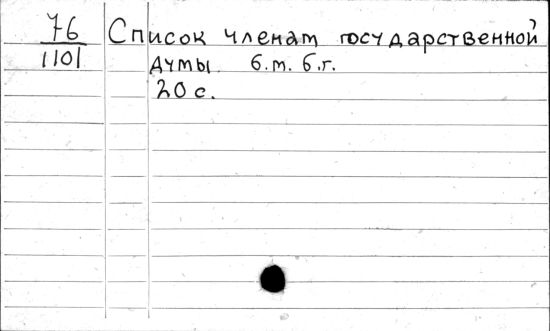 76 Список членат государственной
1101 думы б.т. б.г.
20 с.